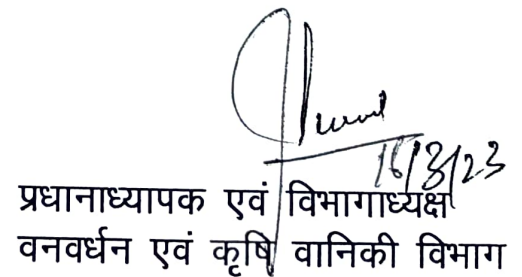 16/3/23
प्रधानाध्यापक एवं विभागाध्यक्ष
वनवर्धन एवं कृषि वानिकी विभाग